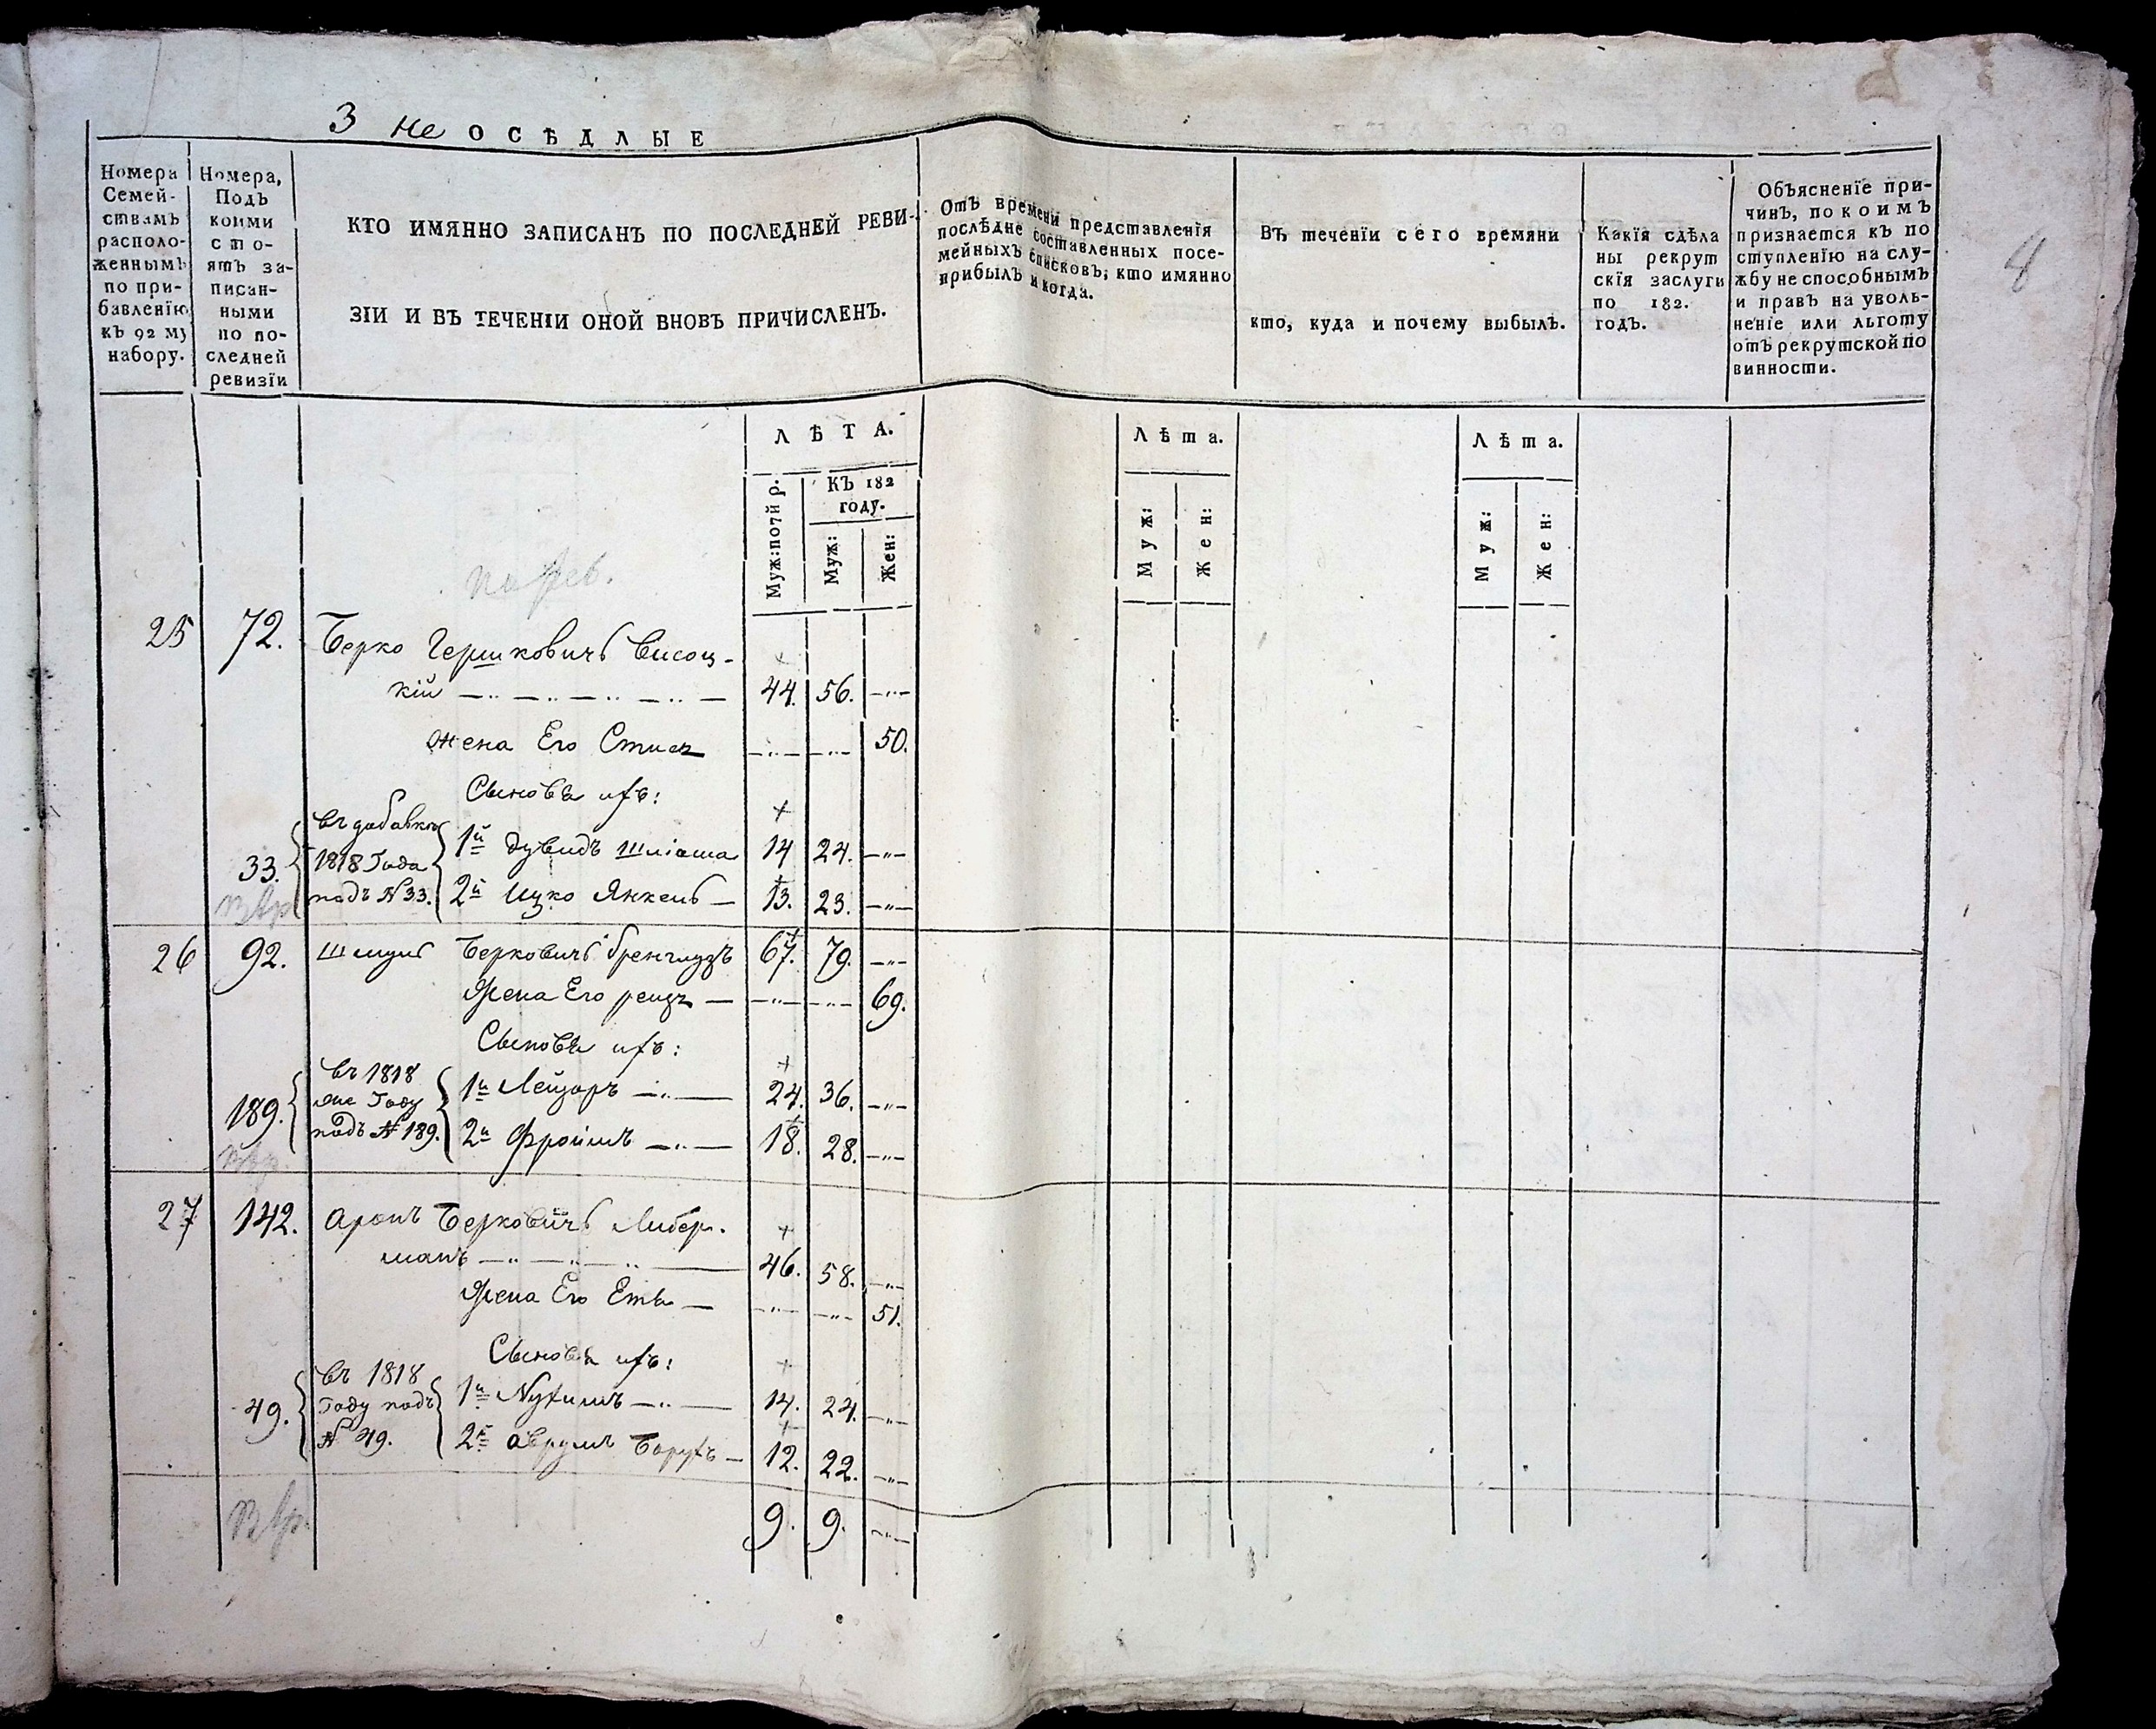 3 не ОСѢДЛЫЕ
Номера Семей-ствамъ располо-женнымъ по при-бавленію къ 92 му набору.
Номера, Подъ коими сто-ятъ за-писан-ными по по-следней ревизіи
КТО ИМЯННО ЗАПИСАНЪ ПО ПОСЛЕДНЕЙ РЕВИ-
ЗІИ И ВЪ ТЕЧЕНІИ ОНОЙ ВНОВЬ ПРИЧИСЛЕНЪ.
Отъ времени представленія
послѣдне составленныхъ посе-
мейныхъ списковъ; кто имянно
прибылъ и когда.
Въ теченіи сего времяни
кто, куда и почему выбылъ.
Какія сдѣла
ны рекрут
скія заслуги
по 182.
годъ.
Объясненіе при-
чинъ, по коимъ
признается къ по
ступленію на слу-
жбу не способнымъ
и правъ на уволь-
неніе или льготу
отъ рекрутской по
винности.
ЛѢТА.
Муж: по 7й р.
КЪ 182
году.
Муж:
Жен:
Лѣта.
Муж:
Жен:
Лѣта.
Муж:
Жен:
8
25 72. Берко Гершковичъ Висоц-
кій 44. 56.
жена Его 50.
Сыновья ихъ:
33. въ добавкѣ 1818 Года подъ № 33.
1й Дувидъ Шліома 14 24.
2й Ицко Янкель 13. 23.
26 92. Шмуль Берковичъ 67. 79.
Жена Его 69.
Сыновья ихъ:
189. въ 1818 же Году подъ № 189.
1й Лейзоръ 24. 36.
2й Фроимъ 18. 28.
27 142. Аронъ Берковичъ Либер-
манъ 46. 58.
Жена Его Еты 51.
Сыновья ихъ:
49. въ 1818 Году подъ № 49.
1й Нухимъ 14. 24.
2й Аврумъ Борухъ 12. 22.
9. 9.